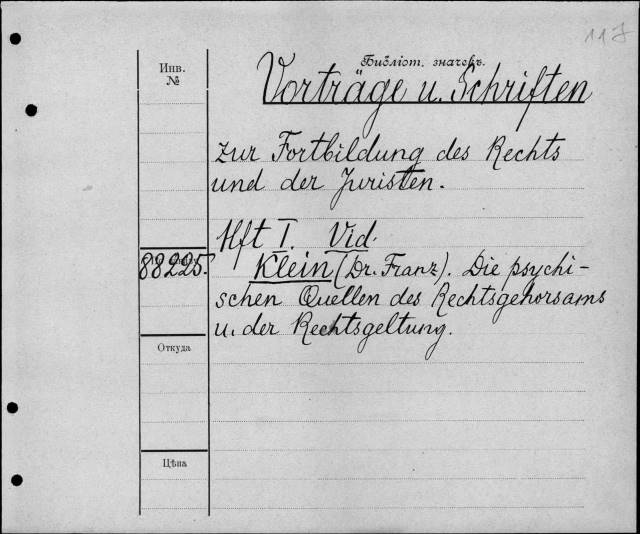 117
Библіот. значокъ.
Инв.
№
Vorträge u. Schriften
zur Fortbildung des Rechts
und der Juristen.
Hft I. Vid.
88225. Klein (Dr. Franz). Die psychi-
schen Quellen des Rechtsgehorsams
u. der Rechtsgeltung.
Откуда
Цѣна